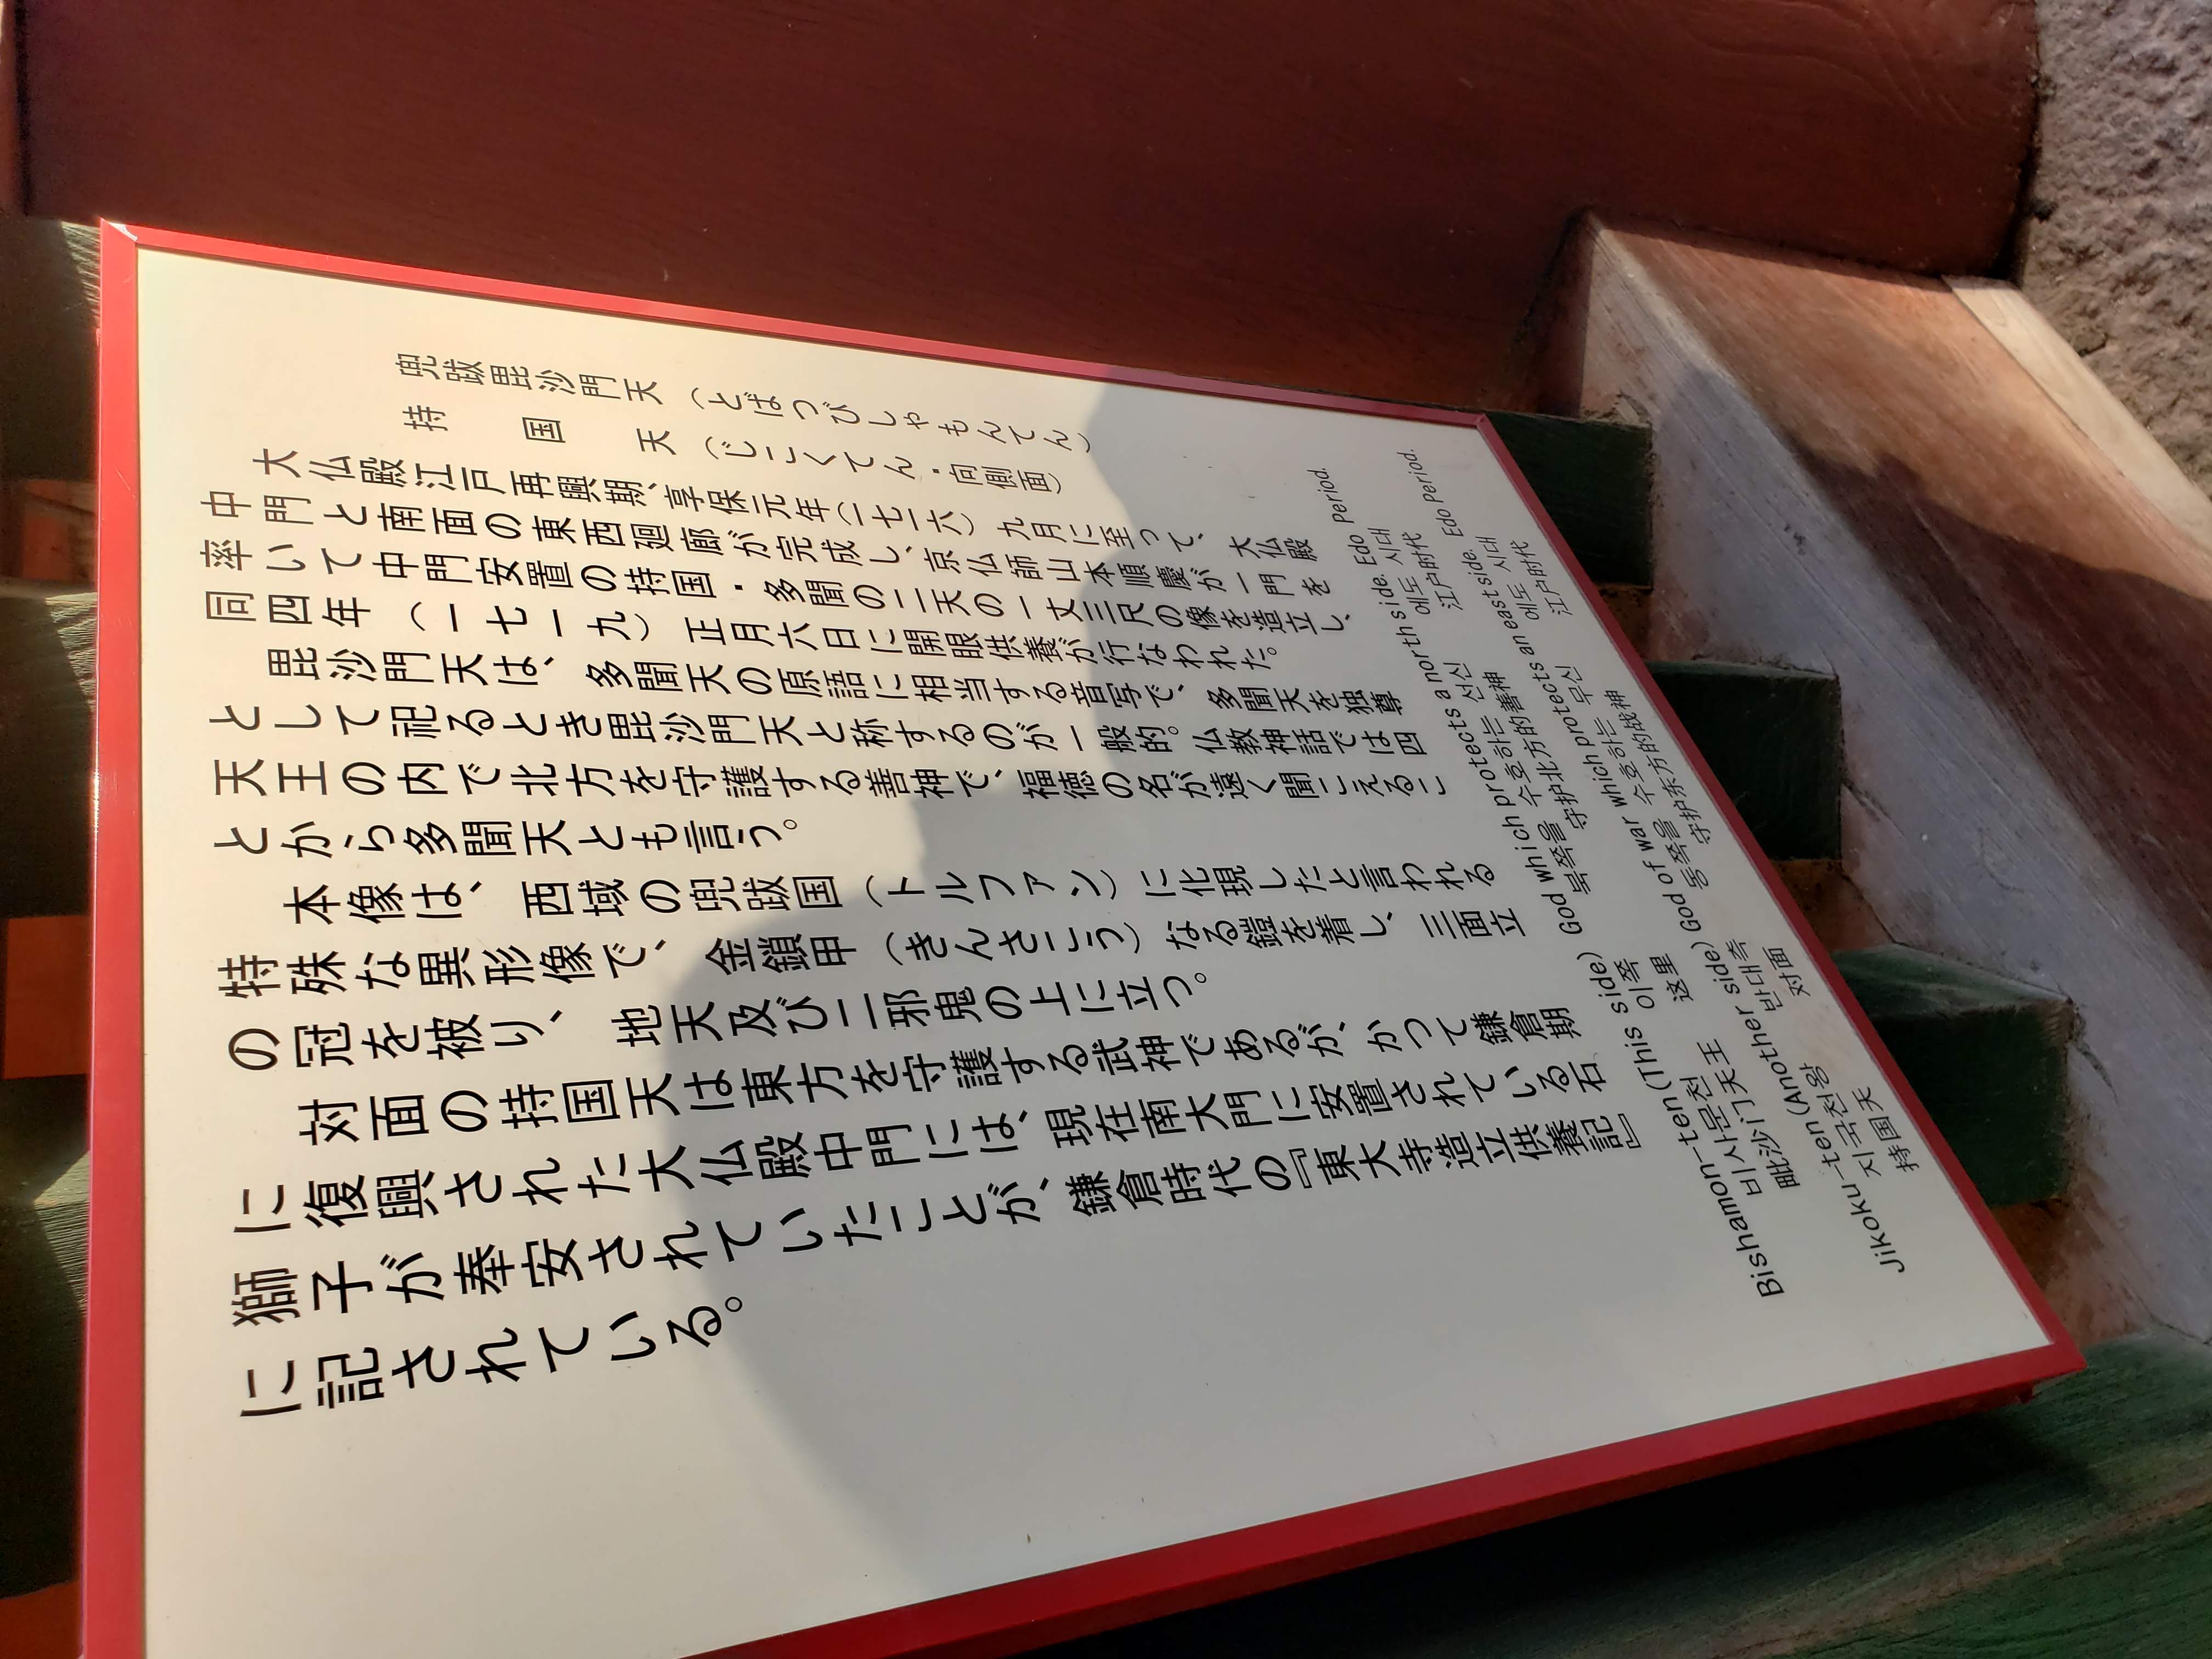 兜跋毘沙門天（とばつびしゃもんてん）
持国天（じこくてん・向側面）
大仏殿江戸再興期、享保元年（一七一六）九月に至って、大仏殿
中門と南面の東西廻廊が完成し、京仏師山本順慶が一門を
率いて中門安置の持国・多聞の二天の一丈三尺の像を造立し、
同四年（一七一九）正月六日に開眼供養が行なわれた。
毘沙門天は、多聞天の原語に相当する音写で、多聞天を独尊
として祀るとき毘沙門天と称するのが一般的。仏教神話では四
天王の内で北方を守護する善神で、福徳の名が遠く聞こえるこ
とから多聞天とも言う。
本像は、西域の兜跋国（トルファン）に化現したと言われる
特殊な異形像で、金鎖甲（きんさこう）なる鎧を着し、三面立
の冠を被り、地天及び二邪鬼の上に立つ。
対面の持国天は東方を守護する武神であるが、かつて鎌倉期
に復興された大仏殿中門には、現在南大門に安置されている石
獅子が奉安されていたことが、鎌倉時代の『東大寺造立供養記』
に記されている。
Bishamon-ten (This side) God which protects a north side. Edo Period.
비사문천 이쪽 북쪽을 수호하는 선신 에도 시대
毗沙门天王 这里 守护北方的善神 江户时代
Jikoku-ten (Another side) God of war which protects an east side. Edo Period.
지국천왕 반대측 동쪽을 수호하는 무신 에도 시대
持国天 对面 守护东方的战神 江户时代